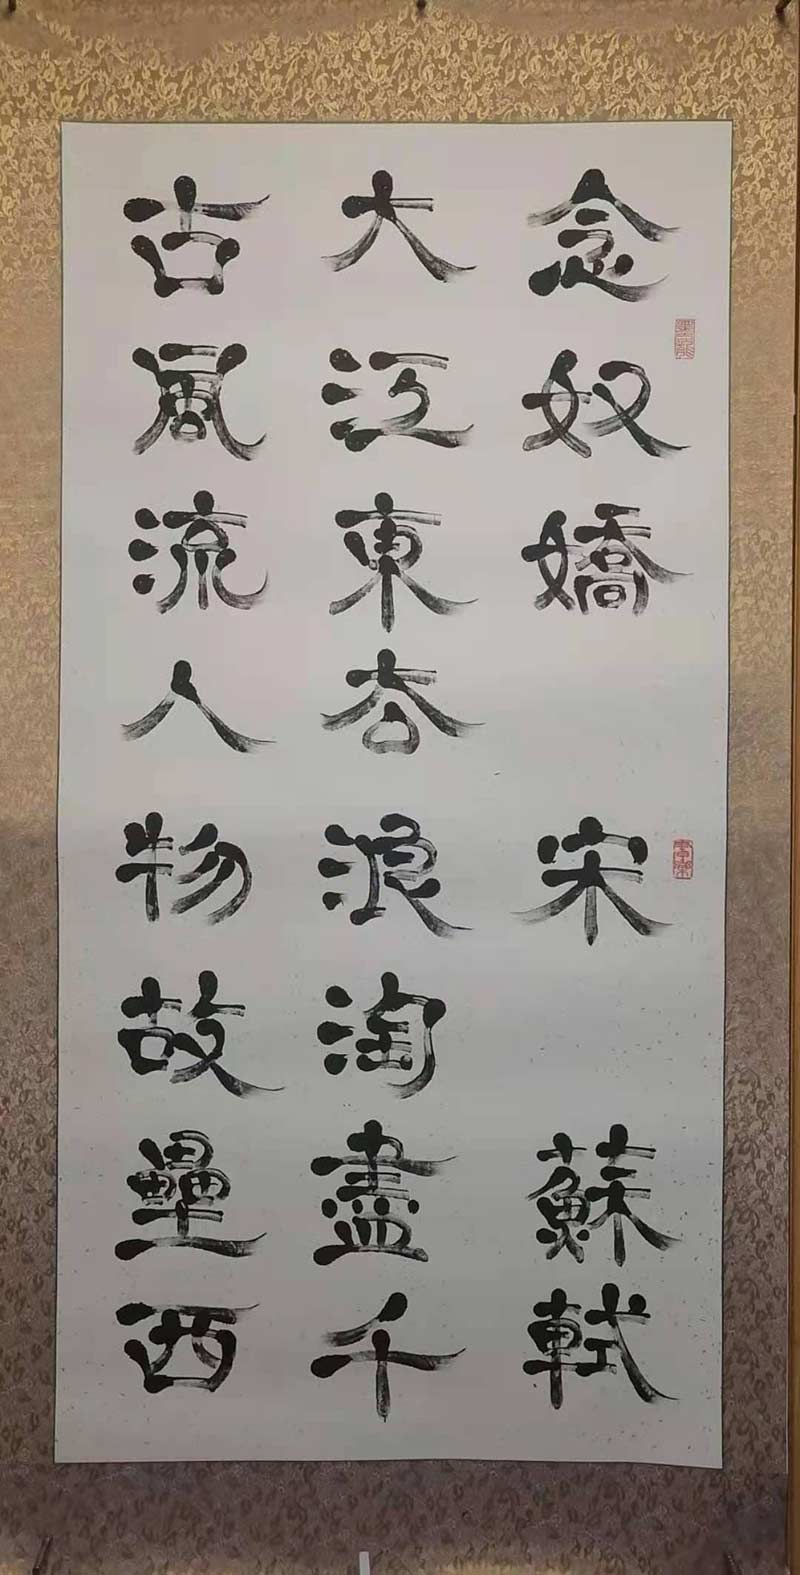 念奴嬌 宋 蘇軾
大江東去浪淘盡千
古風流人物故壘西